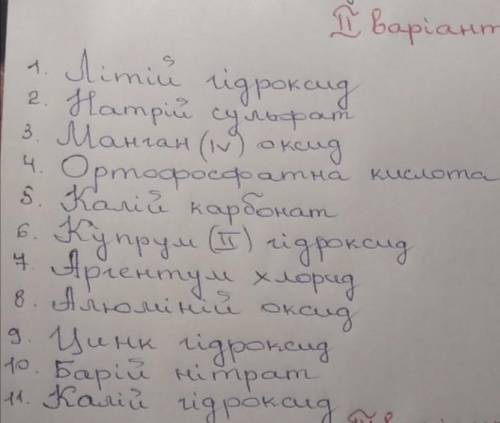 II варіант
1. Літій гідроксид
2. Натрій сульфат
3. Манган (IV) оксид
4. Ортофосфатна кислота
5. Калій карбонат
6. Купрум (II) гідроксид
7. Аргентум хлорид
8. Алюміній оксид
9. Цинк гідроксид
10. Барій нітрат
11. Калій гідроксид